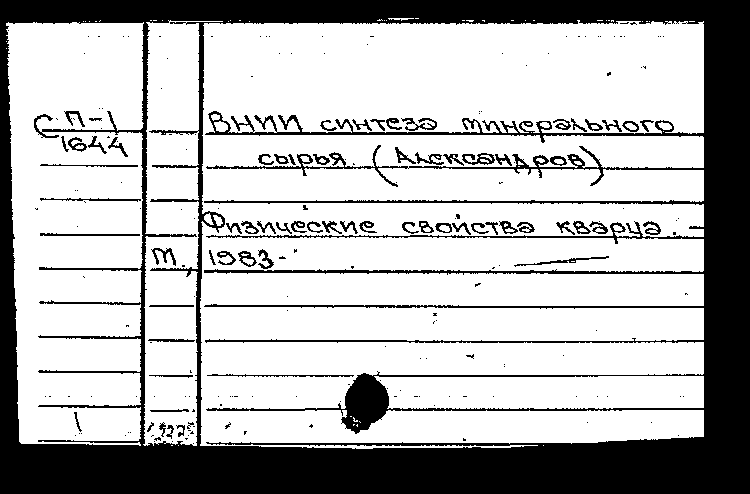 С П-1
1644
ВНИИ синтеза минерального
сырья (Александров)
Физические свойства кварца. -
м., 1983-